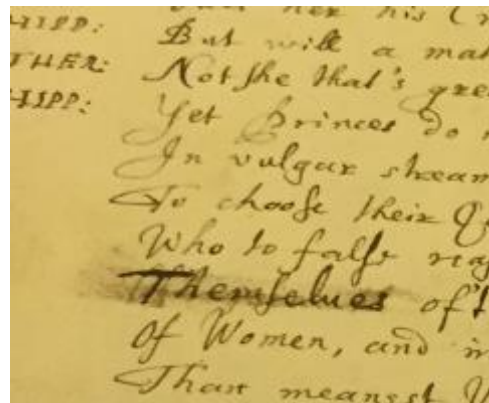 her his
HIPP: But will a
THER: Not she that's
HIPP: Yet Princes do
In vulgar
To choose their
Who to false
Themselues oft
Of Women, and
Than meanest